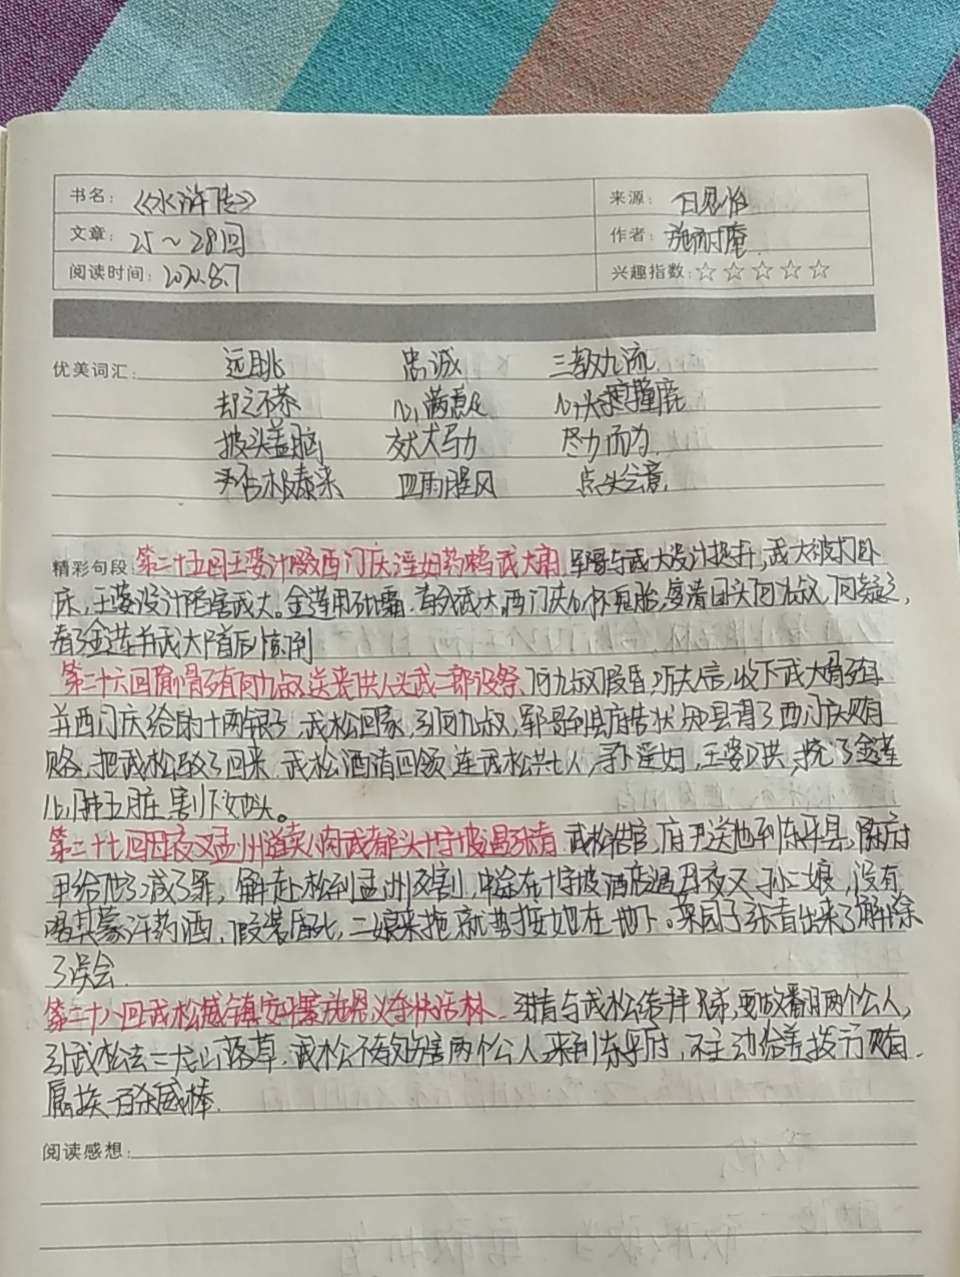 书名：《水浒传》 来源：
文章：25～28回 作者：施耐庵
阅读时间： 兴趣指数:☆☆☆☆☆
优美词汇： 远眺 忠诚 三教九流
却之不恭 心满意 心头撞鹿
披头盖脑 犬马力 尽力而为
否极泰来 血雨腥风 点头会意
精彩句段 第二十五回王婆计啜西门庆淫妇药鸩武大郎 郓哥与武大设计捉奸，武大被打卧
床，王婆设计陷害武大。金莲用砒霜 武大，西门庆心怀鬼胎，宴请团头何九叔，何疑之，
看了金莲并武大 首后惊倒
第二十六回 骨 何九叔送丧供人头武二郎设祭 何九叔假昏 ，收下武大骨
并西门庆给的十两银子，武松回家，引何九叔，郓哥到县府告状，知县得了西门庆贿
赂，把武松驳了回来，武松酒请四领，连武松共七人，寻下淫妇，王婆口供，挖了金莲
心肝五脏，割下头。
第二十七回母夜叉孟州道卖人肉武都头十字坡遇张青 武松告官，府尹送他到东平县，陈府
尹给他减了罪，解赴松到孟州 ，中途在十字坡酒店遇母夜叉孙二娘，没有
喝其蒙汗药酒，假装昏死，二娘来拖，就势按她在地下。菜园子张青出来了解除
了误会
第二十八回武松威镇安平寨施恩义夺快活林 张青与武松结拜兄弟，要放翻两个公人，
引武松去二龙山落草，武松不肯伤害两个公人，来到东平府，不主动给差拨行贿
属挨一百杀威棒.
阅读感想：